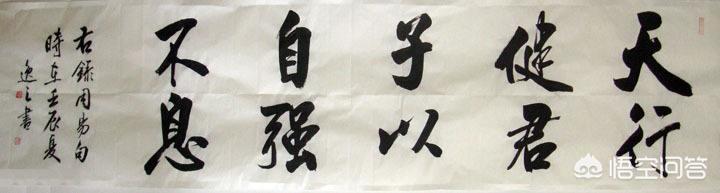 天行
健君
子以
自强
不息
右錄周易句
時在壬辰夏
逸之書
悟空问答